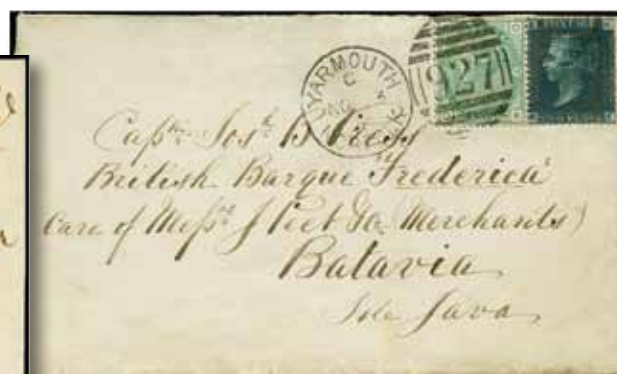 GT YARMOUTH
C
NO
927
Capt. Josh. B
British Barque "Frederica"
Care of Messrs. & Co. Merchants)
Batavia
Isle Java